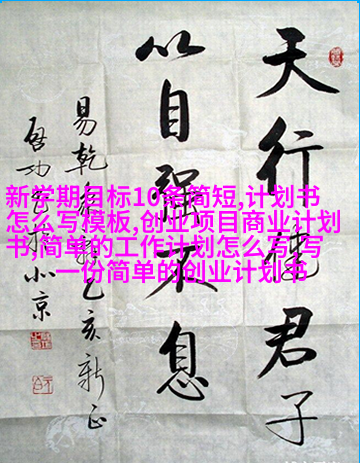 天行健君子
以自强不息
易乾象辞乙亥新正
启功书于北京
新学期目标10条简短,计划书
怎么写模板,创业项目商业计划
书,简单的工作计划怎么写,写
一份简单的创业计划书